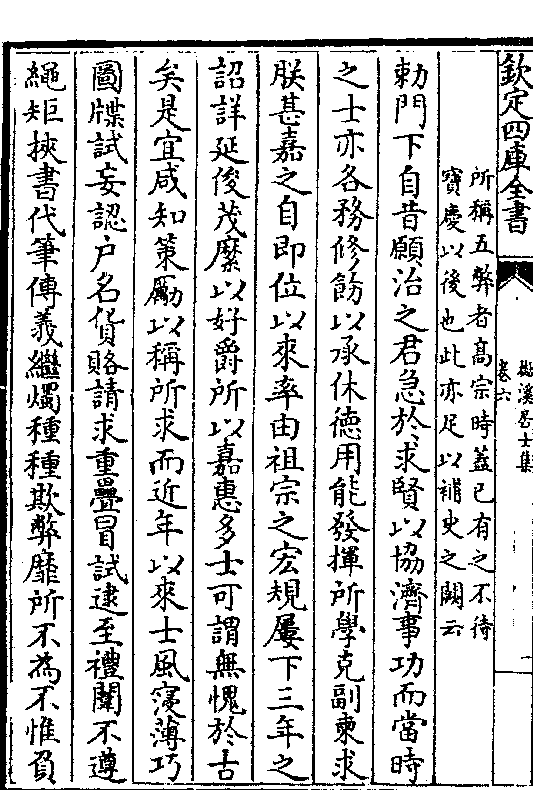 欽定四庫全書
栟溪居士集
卷六
所稱五弊者高宗時蓋已有之不待
寳慶以後也此亦足以補史之闕云
勅門下自昔願治之君急於求賢以協濟事功而當時
之士亦各務修飭以承休德用能發揮所學克副柬求
朕甚嘉之自即位以來率由祖宗之宏規屢下三年之
詔詳延俊茂縻以好爵所以嘉惠多士可謂無愧於古
矣是宜咸知策勵以稱所求而近年以來士風寖薄巧
圖牒試妄認户名貨賂請求重疊冒試逮至禮闈不遵
繩矩挾書代筆傳義繼燭種種欺弊靡所不為不惟負